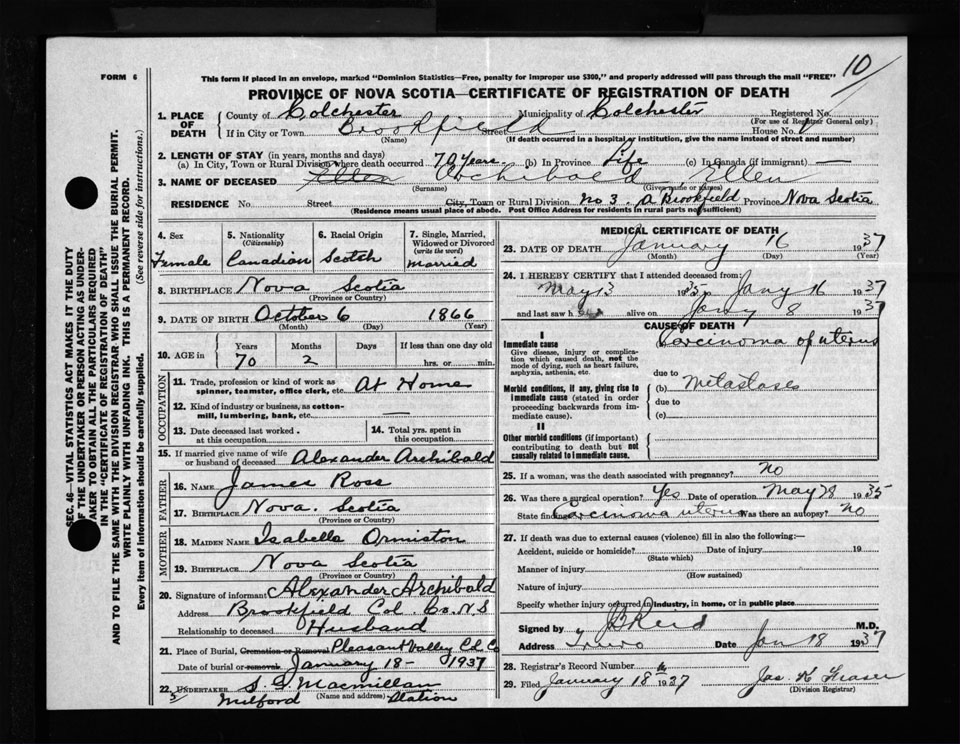 10
FORM 6
This form if placed in an envelope, marked "Dominion Statistics—Free, penalty for improper use $300," and properly addressed will pass through the mail "FREE"
PROVINCE OF NOVA SCOTIA—CERTIFICATE OF REGISTRATION OF DEATH
SEC. 46—VITAL STATISTICS ACT MAKES IT THE DUTY
OF THE UNDERTAKER OR PERSON ACTING AS UNDER-
TAKER TO OBTAIN ALL THE PARTICULARS REQUIRED
IN THE "CERTIFICATE OF REGISTRATION OF DEATH"
AND TO FILE THE SAME WITH THE DIVISION REGISTRAR WHO SHALL ISSUE THE BURIAL PERMIT.
WRITE PLAINLY WITH UNFADING INK. THIS IS A PERMANENT RECORD.
Every item of information should be carefully supplied. (See reverse side for instructions.)
1. PLACE OF DEATH
County of Colchester Municipality of Colchester Registered No.
(For use of Registrar General only)
If in City or Town Brookfield Street House No.
(Name) (If death occurred in a hospital or institution, give the name instead of street and number)
2. LENGTH OF STAY (in years, months and days)
(a) In City, Town or Rural Division where death occurred 70 Years (b) In Province Life (c) In Canada (if immigrant) —
3. NAME OF DECEASED Ellen Archibald Ellen
(Surname) (Given name or names)
RESIDENCE No. Street City, Town or Rural Division No 3. a Brookfield Province Nova Scotia
(Residence means usual place of abode. Post Office Address for residents in rural parts not sufficient)
4. Sex
Female
5. Nationality
(Citizenship)
Canadian
6. Racial Origin
Scotch
7. Single, Married,
Widowed or Divorced
(write the word)
Married
8. BIRTHPLACE Nova Scotia
(Province or Country)
9. DATE OF BIRTH October 6 1866
(Month) (Day) (Year)
10. AGE in
Years Months Days If less than one day old
70 2 hrs. or min.
OCCUPATION
11. Trade, profession or kind of work as At Home
spinner, teamster, office clerk, etc.
12. Kind of industry or business, as cotton-
mill, lumbering, bank, etc. —
13. Date deceased last worked
at this occupation
14. Total yrs. spent in
this occupation
15. If married give name of wife
or husband of deceased Alexander Archibald
FATHER
16. NAME James Ross
17. BIRTHPLACE Nova Scotia
(Province or Country)
MOTHER
18. MAIDEN NAME Isabella Ormiston
19. BIRTHPLACE Nova Scotia
(Province or Country)
20. Signature of informant Alexander Archibald
Address Brookfield Col. Co. N.S
Relationship to deceased Husband
21. Place of Burial, Cremation or Removal Pleasant Valley Col. Co
Date of burial or removal January 18- 1937
22. UNDERTAKER S. G. Macmillan
(Name and address)
Milford Station
MEDICAL CERTIFICATE OF DEATH
23. DATE OF DEATH January 16 1937
(Month) (Day) (Year)
24. I HEREBY CERTIFY that I attended deceased from:
May 13 1935 to Jany 16 1937
and last saw h alive on Jany 8 1937
CAUSE OF DEATH
I
Immediate cause
Give disease, injury or complica-
tion which caused death, not the
mode of dying, such as heart failure,
asphyxia, asthenia, etc.
Carcinoma of uterus
due to
Morbid conditions, if any, giving rise to
immediate cause (stated in order
proceeding backwards from im-
mediate cause).
(b) Metastases
due to
(c)
II
Other morbid conditions (if important)
contributing to death but not
causally related to immediate cause.
25. If a woman, was the death associated with pregnancy? No
26. Was there a surgical operation? Yes Date of operation May 28 1935
State findings Carcinoma uterus Was there an autopsy? No
27. If death was due to external causes (violence) fill in also the following:—
Accident, suicide or homicide? Date of injury 19
(State which)
Manner of injury
(How sustained)
Nature of injury
Specify whether injury occurred in industry, in home, or in public place
Signed by Reid M.D.
Address Truro Date Jan 18 1937
28. Registrar's Record Number
29. Filed January 18 1937 Jas. K Fraser
(Division Registrar)